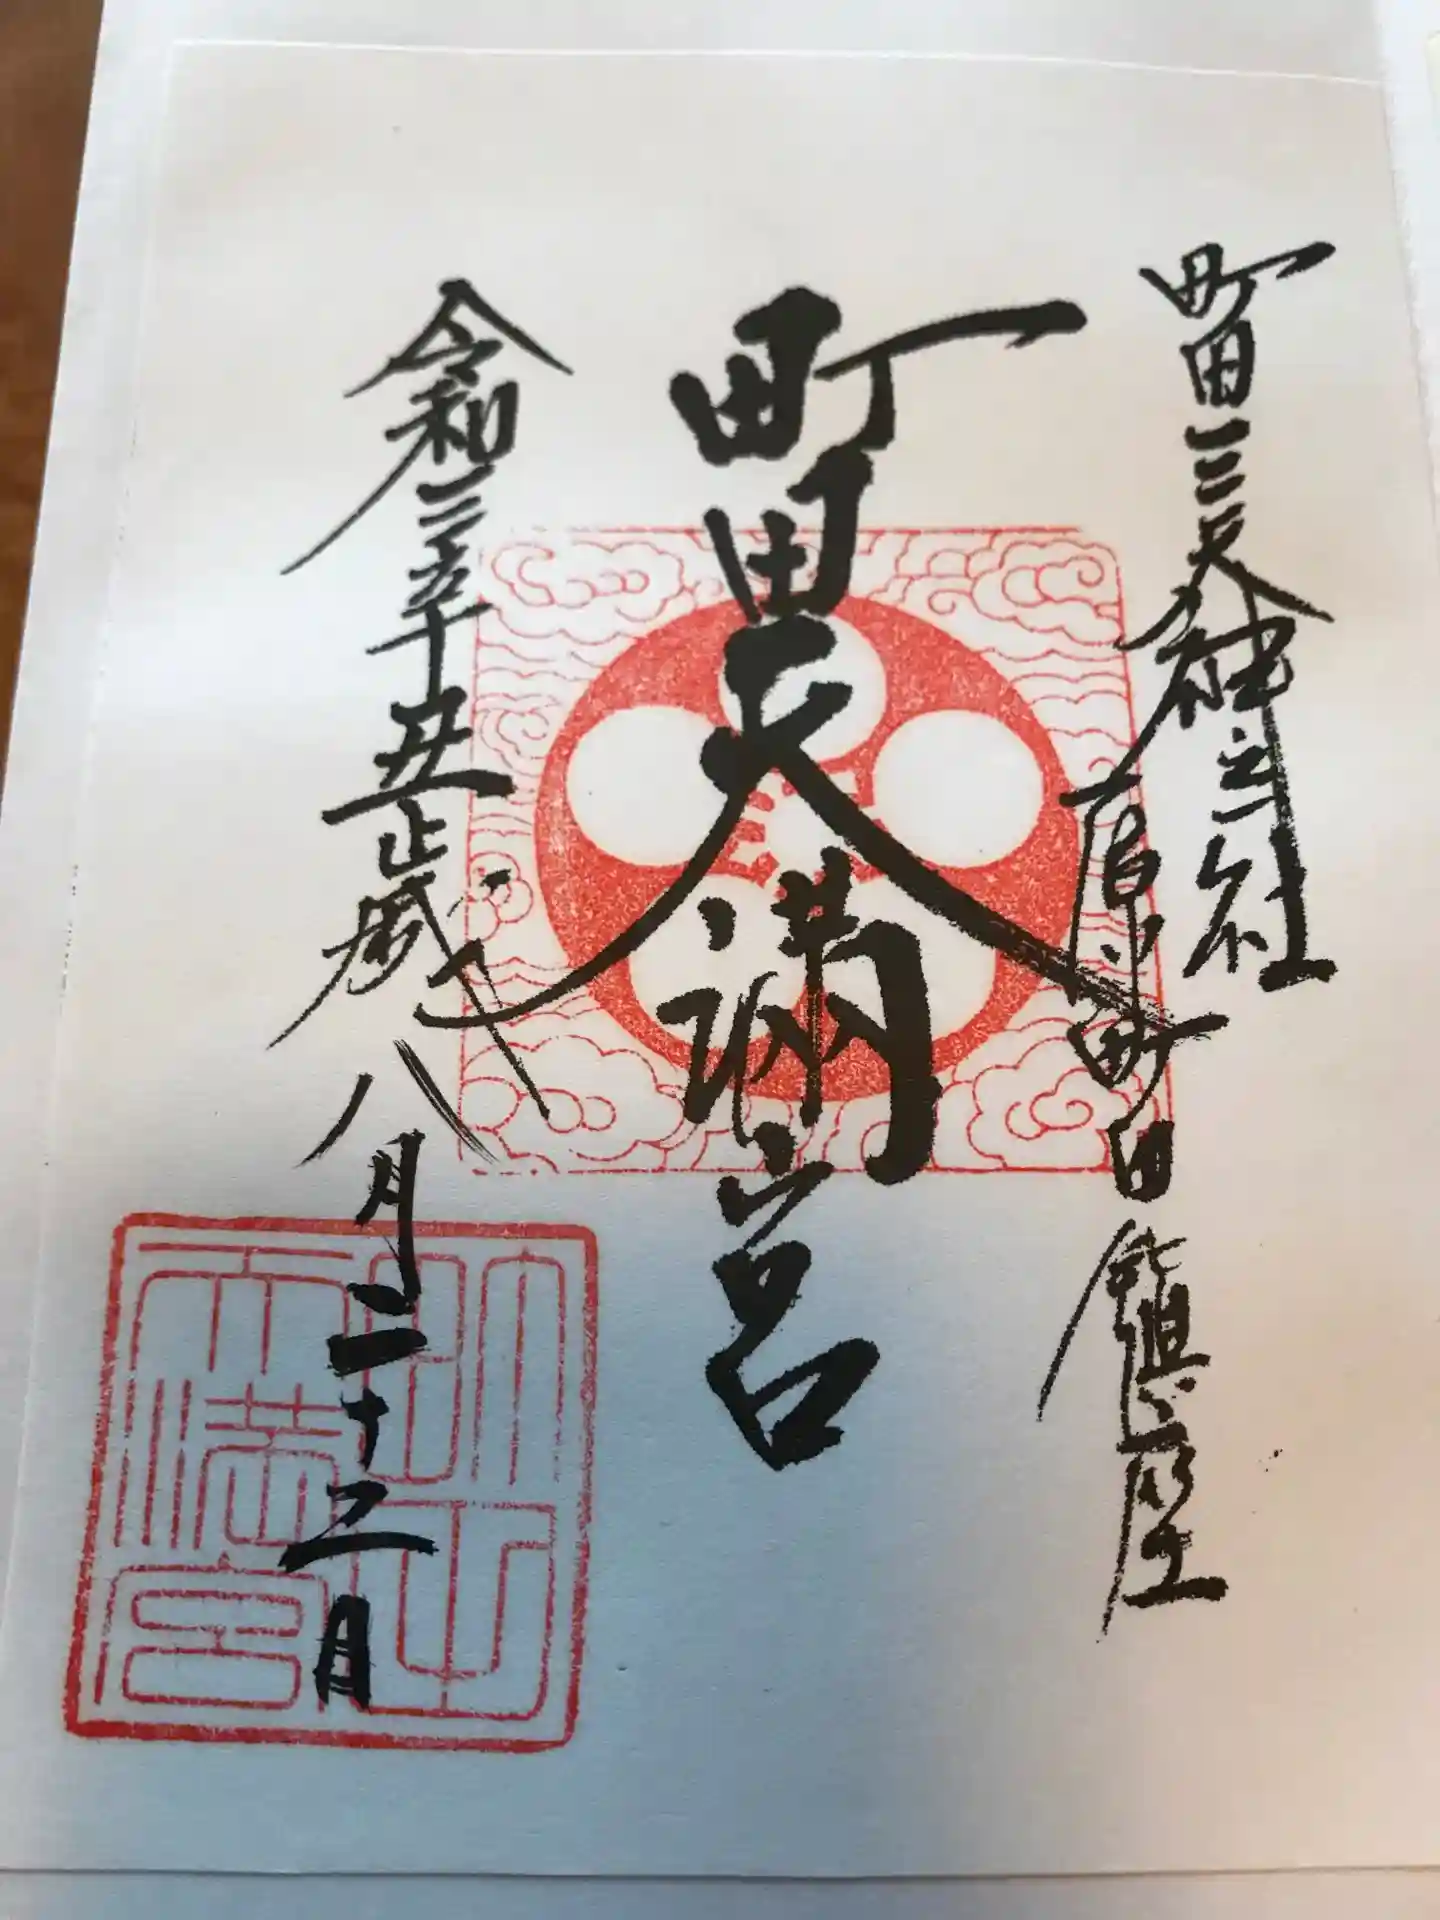 町田三天神之社
原町田鎮座
町田天満宮
令和三年丑歳
八月二十二日
町田天満宮